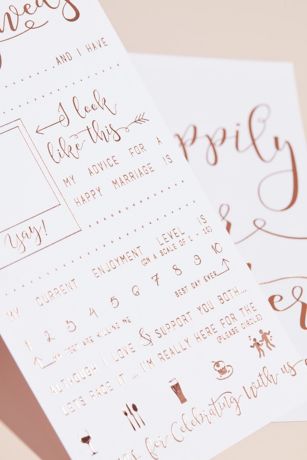 ...AND I HAVE
I look
like this
MY ADVICE FOR A
HAPPY MARRIAGE IS
Yay!
MY CURRENT ENJOYMENT LEVEL IS
(ON A SCALE OF 1 - 10)
1 2 3 4 5 6 7 8 9 10
BEST DAY EVER
ALTHOUGH I LOVE & SUPPORT YOU BOTH...
LET'S FACE IT ... I'M REALLY HERE FOR THE
(PLEASE CIRCLE)
for Celebrating With us
ppily
er